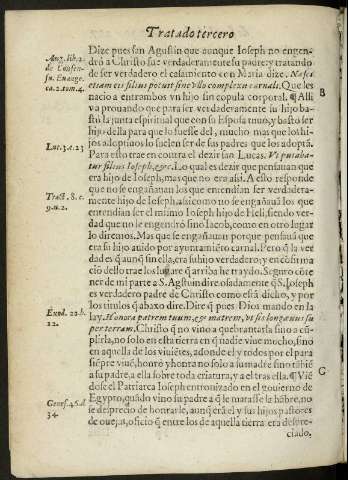 Tratado tercero
Aug. lib. 2.
de Consen-
su. Euange.
ca. 2. tom. 4.
Dize pues san Agustin que aunque Ioseph no engen-
dró a Christo fue verdaderamente su padre; y tratando
de ser verdadero el casamiento con Maria dize. Nasci
etiam eis filius potuit sine vllo complexu carnali. Que les
nacio a entrambos vn hijo sin copula corporal. ¶ Alli
B
va prouando que para ser verdaderamente su hijo bas-
tó la junta espiritual que con su Esposa tuuo, y bastó ser
hijo della para que lo fuesse del, mucho mas que los hi-
jos adoptiuos lo suelen ser de sus padres que los adoptã.
Luc. 3. c. 23
Para esto trae en contra el dezir san Lucas. Vt putaba-
tur filius Ioseph, &c. Lo qual es dezir que pensauan que
era hijo de Ioseph, mas que no era assi. A esto responde
Tract. 8. c.
9. n. 2.
que no se engañauan los que entendian ser verdadera-
mente hijo de Ioseph, assi como no se engañauã los que
entendian ser el mismo Ioseph hijo de Heli, siendo ver-
dad que no le engendró sino Iacob, como en otro lugar
lo diremos. Mas que se engañauan porque pensauã que
era su hijo auido por ayuntamiẽto carnal. Pero q̃ la ver
dad es q̃ aunq̃ sin ella, era su hijo verdadero; y en cõfirma
ciõ dello trae los lugare q̃ arriba he traydo. Seguro cõte
ner de mi parte a S. Agustin dire osadamente q̃ S. Ioseph
es verdadero padre de Christo como està dicho, y por
los titulos que abaxo dire. Dire q̃ pues Dios mando en la
Exod. 20. b.
12.
ley. Honora patrem tuum, & matrem, vt sis longæuus su
per terram. Christo q̃ no vino a quebrantarla sino a cũ-
plirla, no solo en esta tierra en q̃ nadie viue mucho, sino
en aquella de los viuiẽtes, adonde el y todos por el para
siẽpre viuẽ, honró y honra no solo a su madre sino tãbiẽ
a su padre, a ella sobre toda criatura, y a el tras ella. ¶ Viẽ
C
dose el Patriarca Ioseph entronizado en el gouierno de
Egypto, quãdo vino su padre a q̃ le matasse la hãbre, no
Genes. 45. d
34.
se desprecio de honrarle, aunq̃ erã el y sus hijos pastores
de ouejas, oficio q̃ entre los de aquella tierra era despre-
ciado,